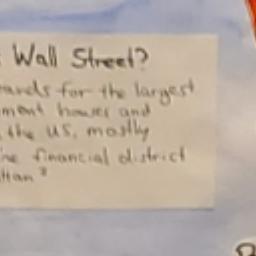 Wall Street?
ands for the largest
ment houses and
the US, mostly
financial district
ttan"